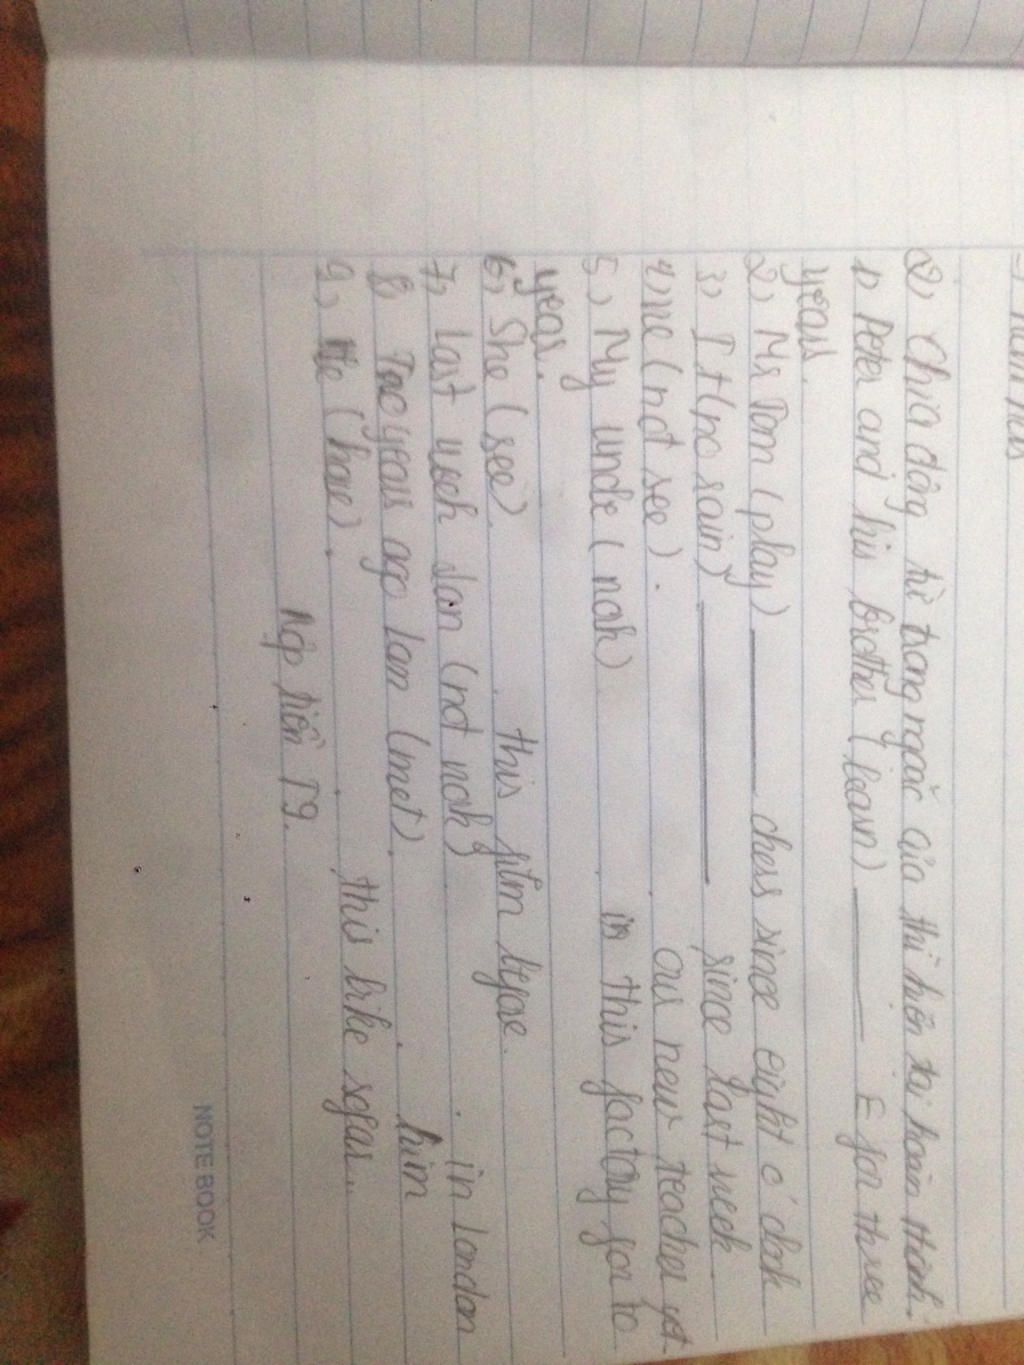 2) Chia động từ trong ngoặc của thì hiện tại hoàn thành.
1) Peter and his brother (learn) ______ E for three
years.
2) Mr Tom (play) ______ chess since eight o' clock
3) It (no rain) ______ since last week
4) He (not see) . . our new teacher yet
5) My uncle ( wok) . in this factory for to
year.
6) She (see) . . this film before.
7) Last week Lan (not wok) . in london
8) Two years ago Lan (met) . . him
9) He (have) . . this bike sofar..
Nộp tiền T9.
NOTEBOOK